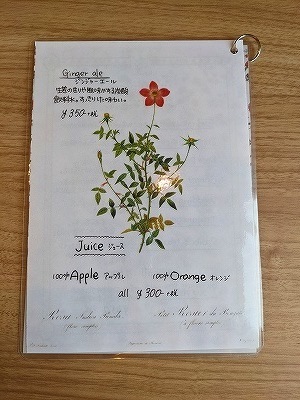 Ginger ale
ジンジャーエール
生姜の香りや風味がある炭酸
飲料水。すっきりした味わい。
¥350-+tax
Juice ジュース
100% Apple アップル 100% Orange オレンジ
all ¥300-+tax